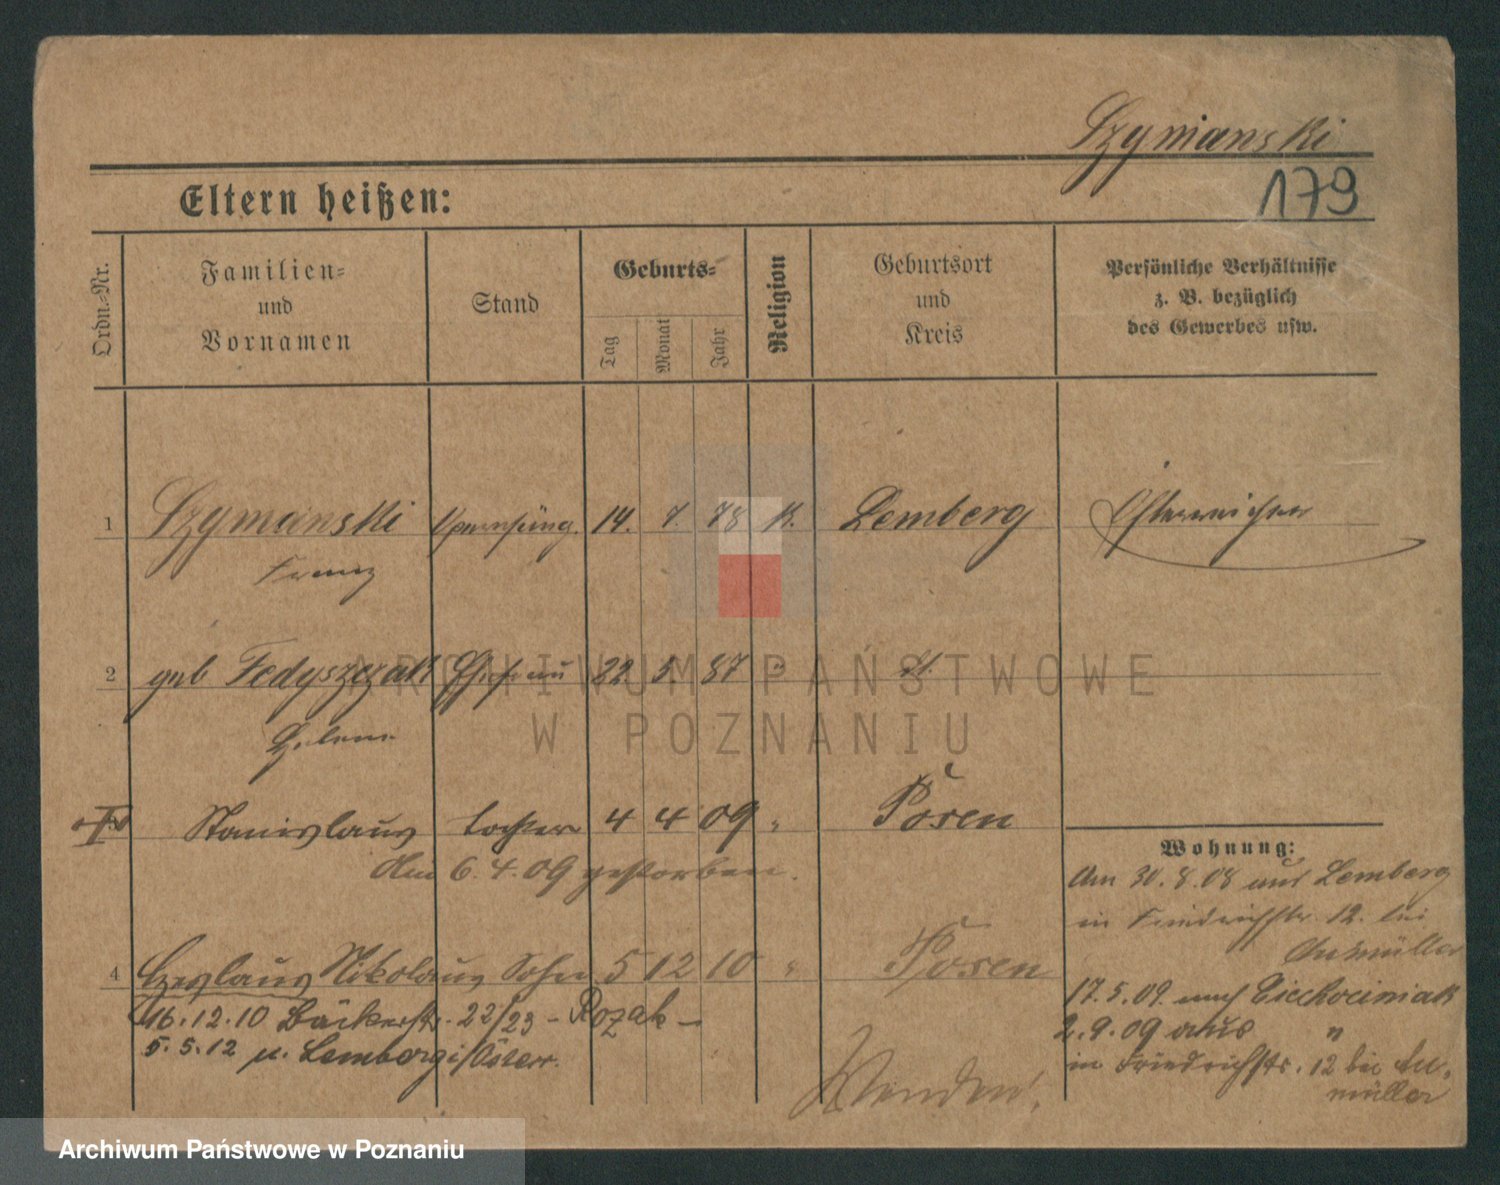 Szymanski
179
Eltern heißen:
Ordn.-Nr.
Familien-
und
Vornamen
Stand
Geburts-
Tag
Monat
Jahr
Religion
Geburtsort
und
Kreis
Persönliche Verhältnisse
z. B. bezüglich
des Gewerbes usw.
1 Szymanski 14. 7. 78 K. Lemberg Österreicher
Franz
2 geb Fedyszczak Ehefrau 22 5. 87 " d.
Helene
Stanislaus 4 4 09 " Posen
Am 6.4.09 gestorben.
4 Czeslaus Nikolaus Sohn 5 12 10 " Posen
16.12.10 Bäckerstr. 22/23 - Rozak -
5.5.12 n. Lemberg i/Österr.
Wohnung:
Am 30.8.08 aus Lemberg
in Friedrichstr. 12. bei
17.5.09. nach Ciechociniak
2.9.09 aus "
in Friedrichstr. 12 bei
müller
Wenden!
ARCHIWUM PAŃSTWOWE
W POZNANIU
Archiwum Państwowe w Poznaniu